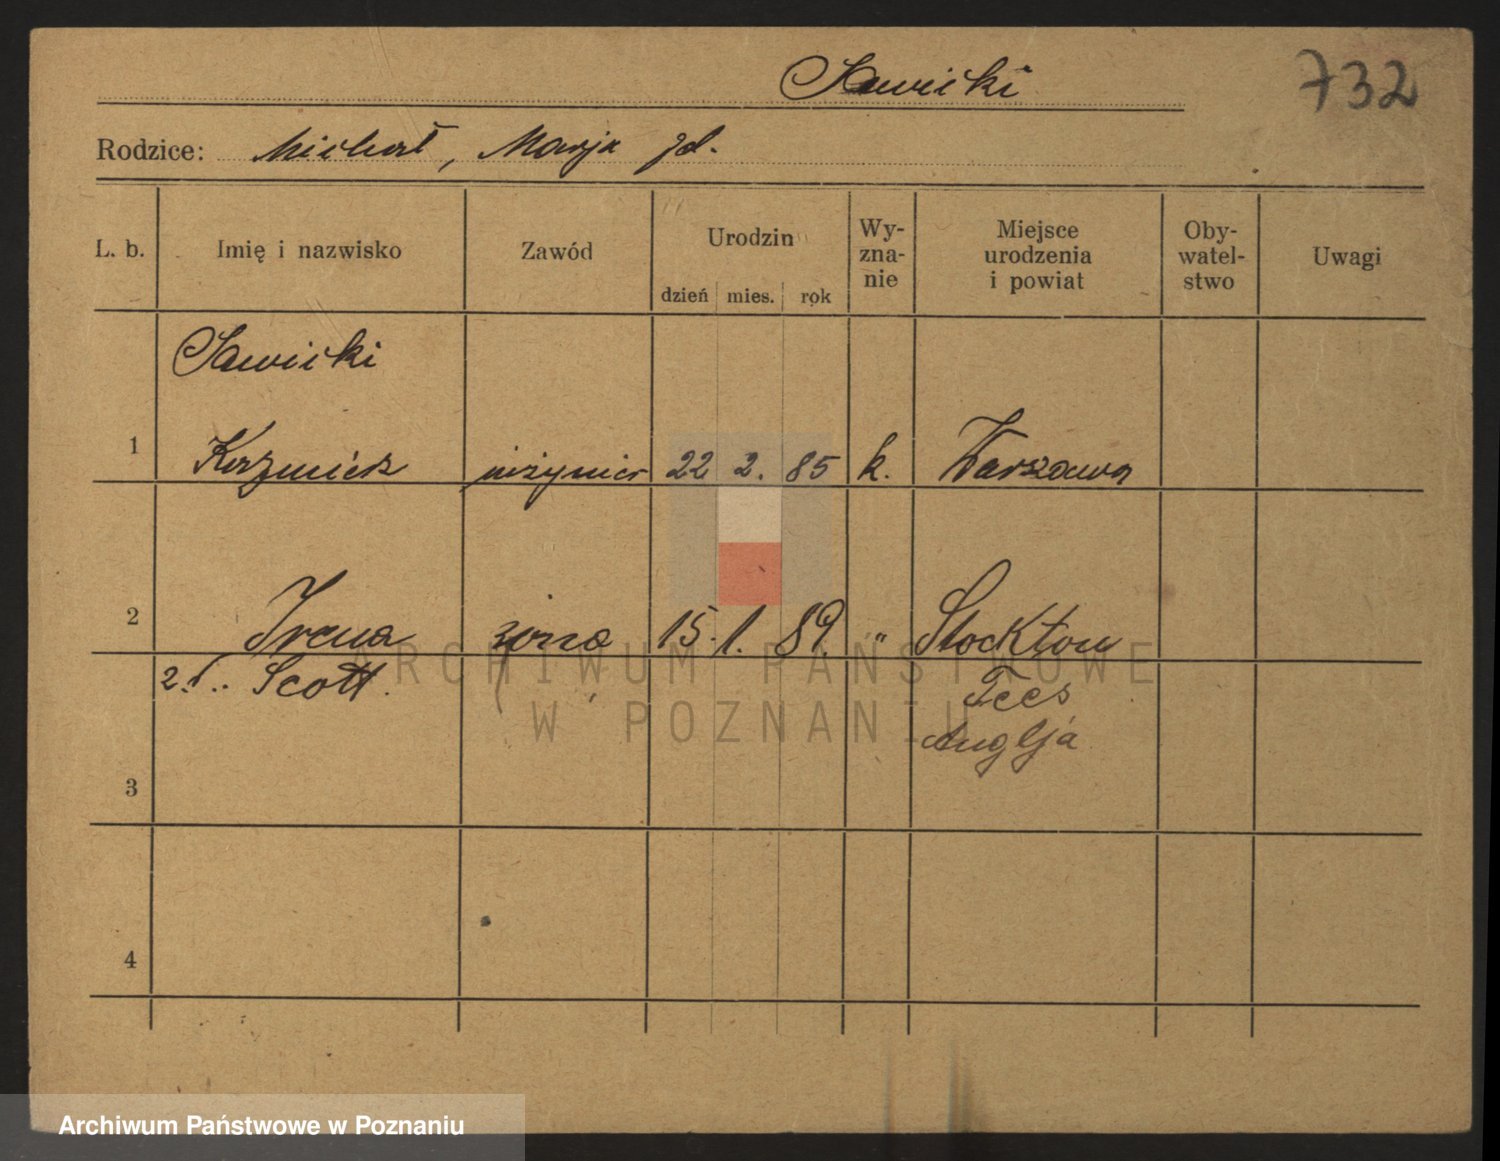 Sawicki
732
Rodzice: Michał, Marja zd.
L. b. Imię i nazwisko Zawód Urodzin dzień mies. rok Wy-zna-nie Miejsce urodzenia i powiat Oby-watel-stwo Uwagi
Sawicki
1 Kazmierz inżynier 22 2. 85 k. Warszawa
2 Irena żona 15. 1. 89. " Stockton
Scott. Tees
Anglja
3
4
ARCHIWUM PAŃSTWOWE
W POZNANIU
Archiwum Państwowe w Poznaniu